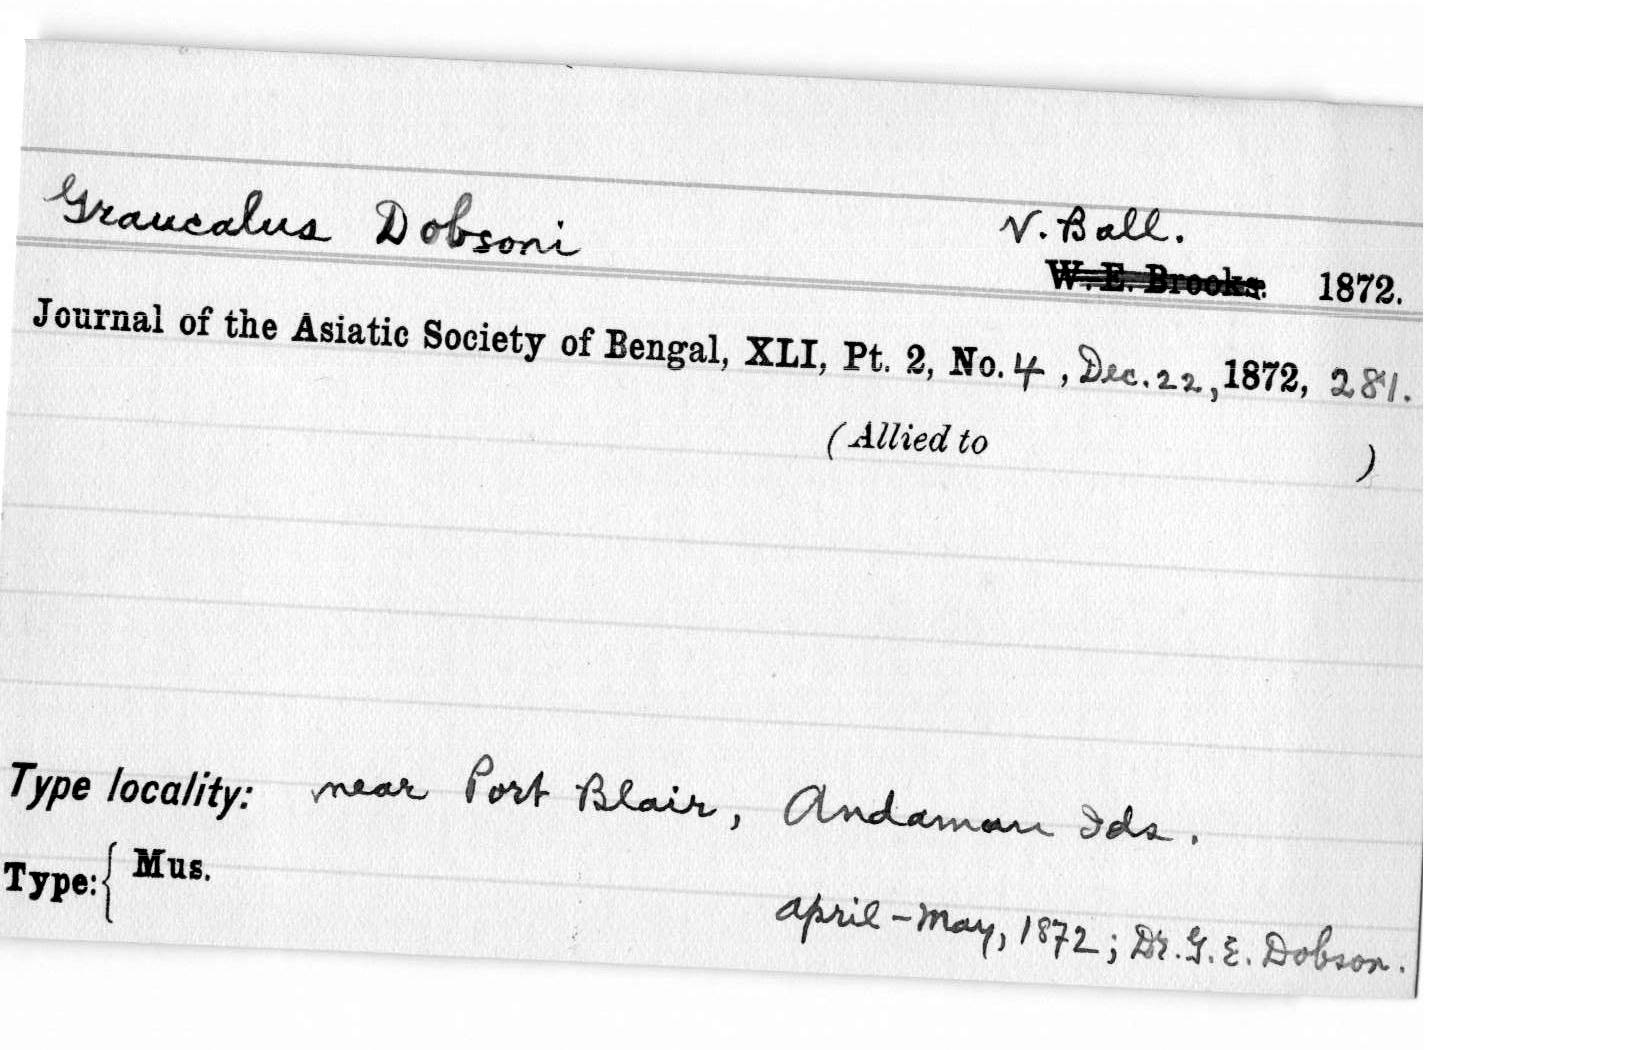 Graucalus Dobsoni
V. Ball.
W. E. Brooks. 1872.
Journal of the Asiatic Society of Bengal, XLI, Pt. 2, No. 4, Dec. 22, 1872, 281.
(Allied to )
Type locality: near Port Blair, Andaman Ids.
Type: { Mus.
April-May, 1872; Dr. G. E. Dobson.